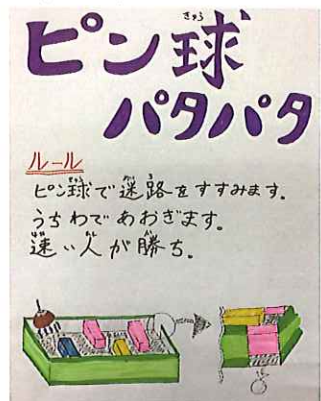 ピン球
パタパタ
ルール
ピン球で迷路をすすみます。
うちわであおぎます。
速い人が勝ち。